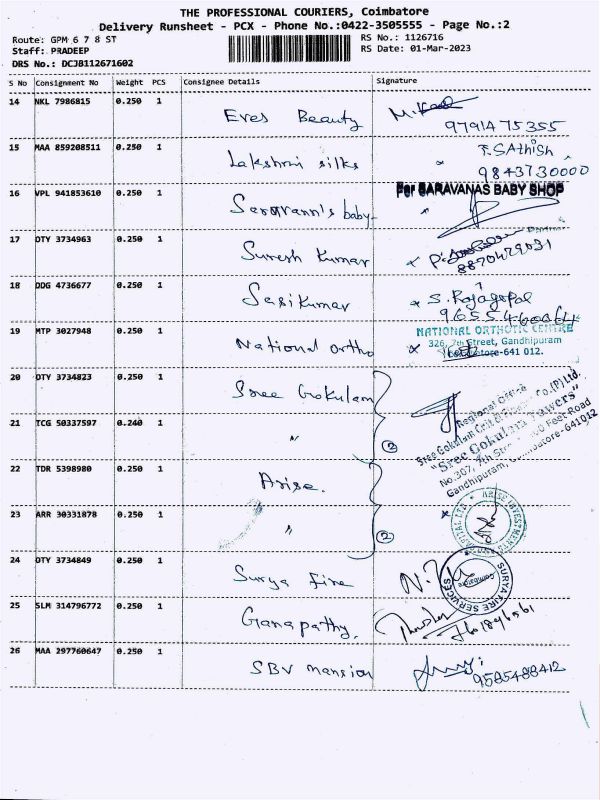 THE PROFESSIONAL COURIERS, Coimbatore
Delivery Runsheet - PCX - Phone No.:0422-3505555 - Page No.:2
Route: GPM 6 7 8 ST RS No.: 1126716
Staff: PRADEEP RS Date: 01-Mar-2023
DRS No.: DCJB112671602
S No Consignment No Weight PCS Consignee Details Signature
14 NKL 7986815 0.250 1 Eves Beauty
9791475355
15 MAA 859208511 0.250 1 Lakshmi silks F.SAthish
9843730000
16 VPL 941853610 0.250 1 Saravann's baby For SARAVANAS BABY SHOP
17 OTY 3734963 0.250 1 Suresh Kumar
8870429031
18 DDG 4736677 0.250 1 Sasikumar S. Rajagopal
19 MTP 3027948 0.250 1 National ortho NATIONAL ORTHOTIC CENTRE
326, 7th Street, Gandhipuram
Coimbatore-641 012.
20 OTY 3734823 0.250 1 Sree Gokulam
Regional Office
Sree Gokulam Chit & Finance Co.(P) Ltd.
"Sree Gokulam Towers"
No.307, 7th Street, 100 Feet Road
Gandhipuram, Coimbatore-641012
21 TCG 50337597 0.240 1 "
2
22 TDR 5398980 0.250 1 Arise.
23 ARR 30331878 0.250 1 "
2
ARISE INVESTMENTS
24 OTY 3734849 0.250 1 Surya fire
SURYA FIRE SERVICES
Coimbatore
25 SLM 314796772 0.250 1 Ganapathy.
26 MAA 297760647 0.250 1 SBV mansion
9585488412